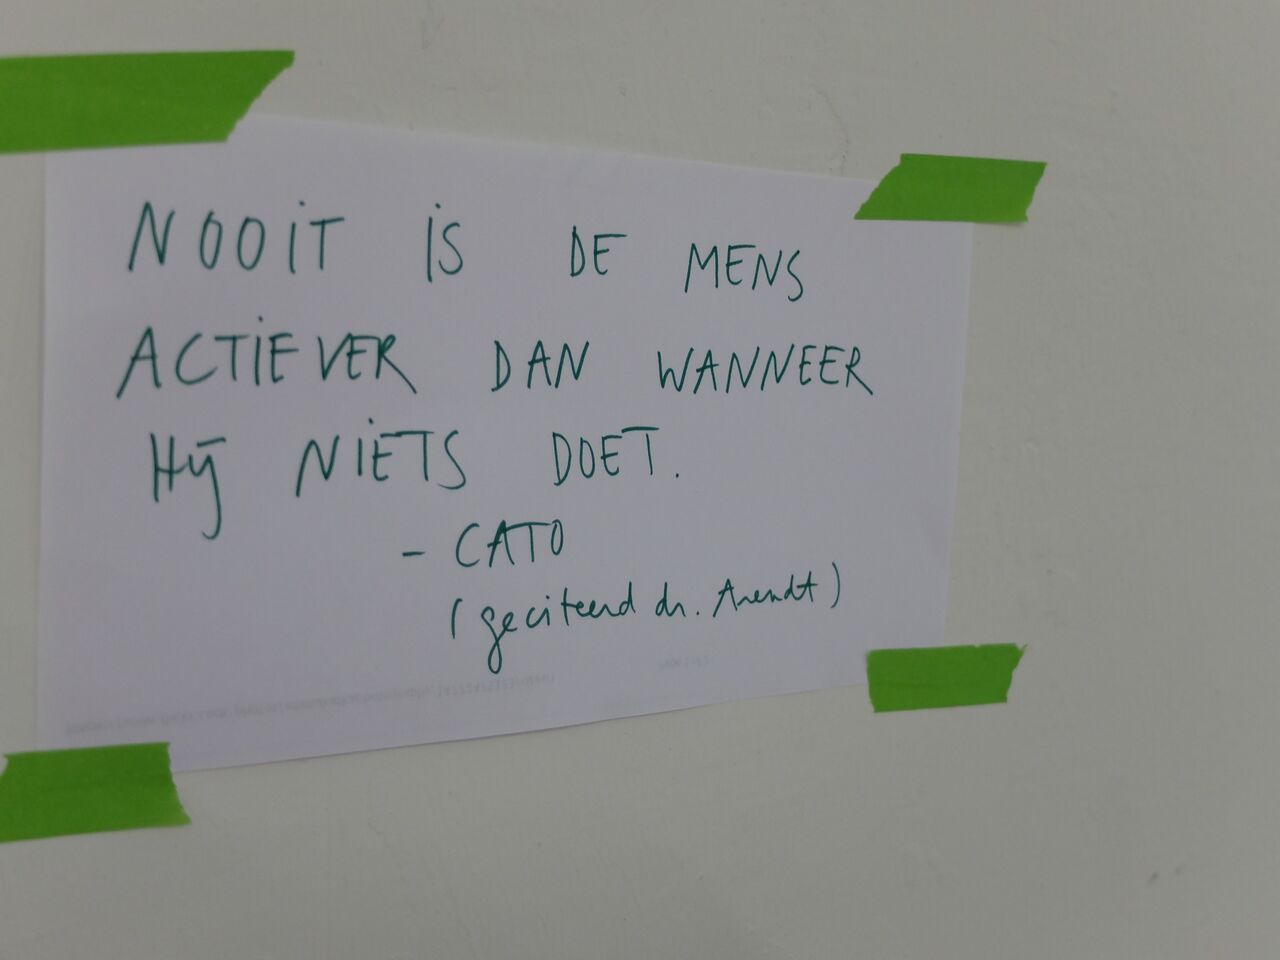 NOOIT IS DE MENS
ACTIEVER DAN WANNEER
HIJ NIETS DOET.
- CATO
(geciteerd dr. Arendt)